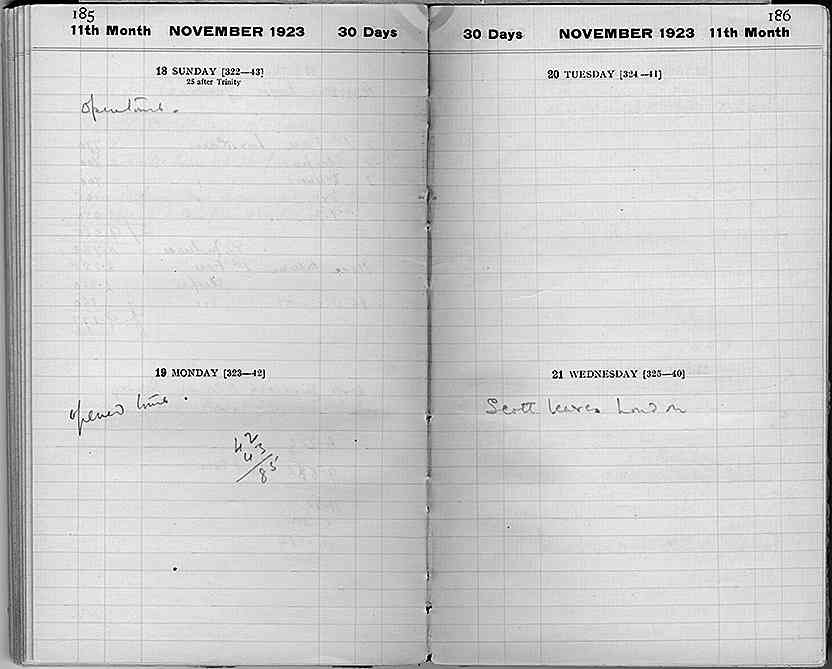 185
11th Month NOVEMBER 1923 30 Days
18 SUNDAY [322—43]
25 after Trinity
Open tomb.
19 MONDAY [323—42]
opened tomb.
42
43
85
186
30 Days NOVEMBER 1923 11th Month
20 TUESDAY [324—41]
21 WEDNESDAY [325—40]
Scott leaves London